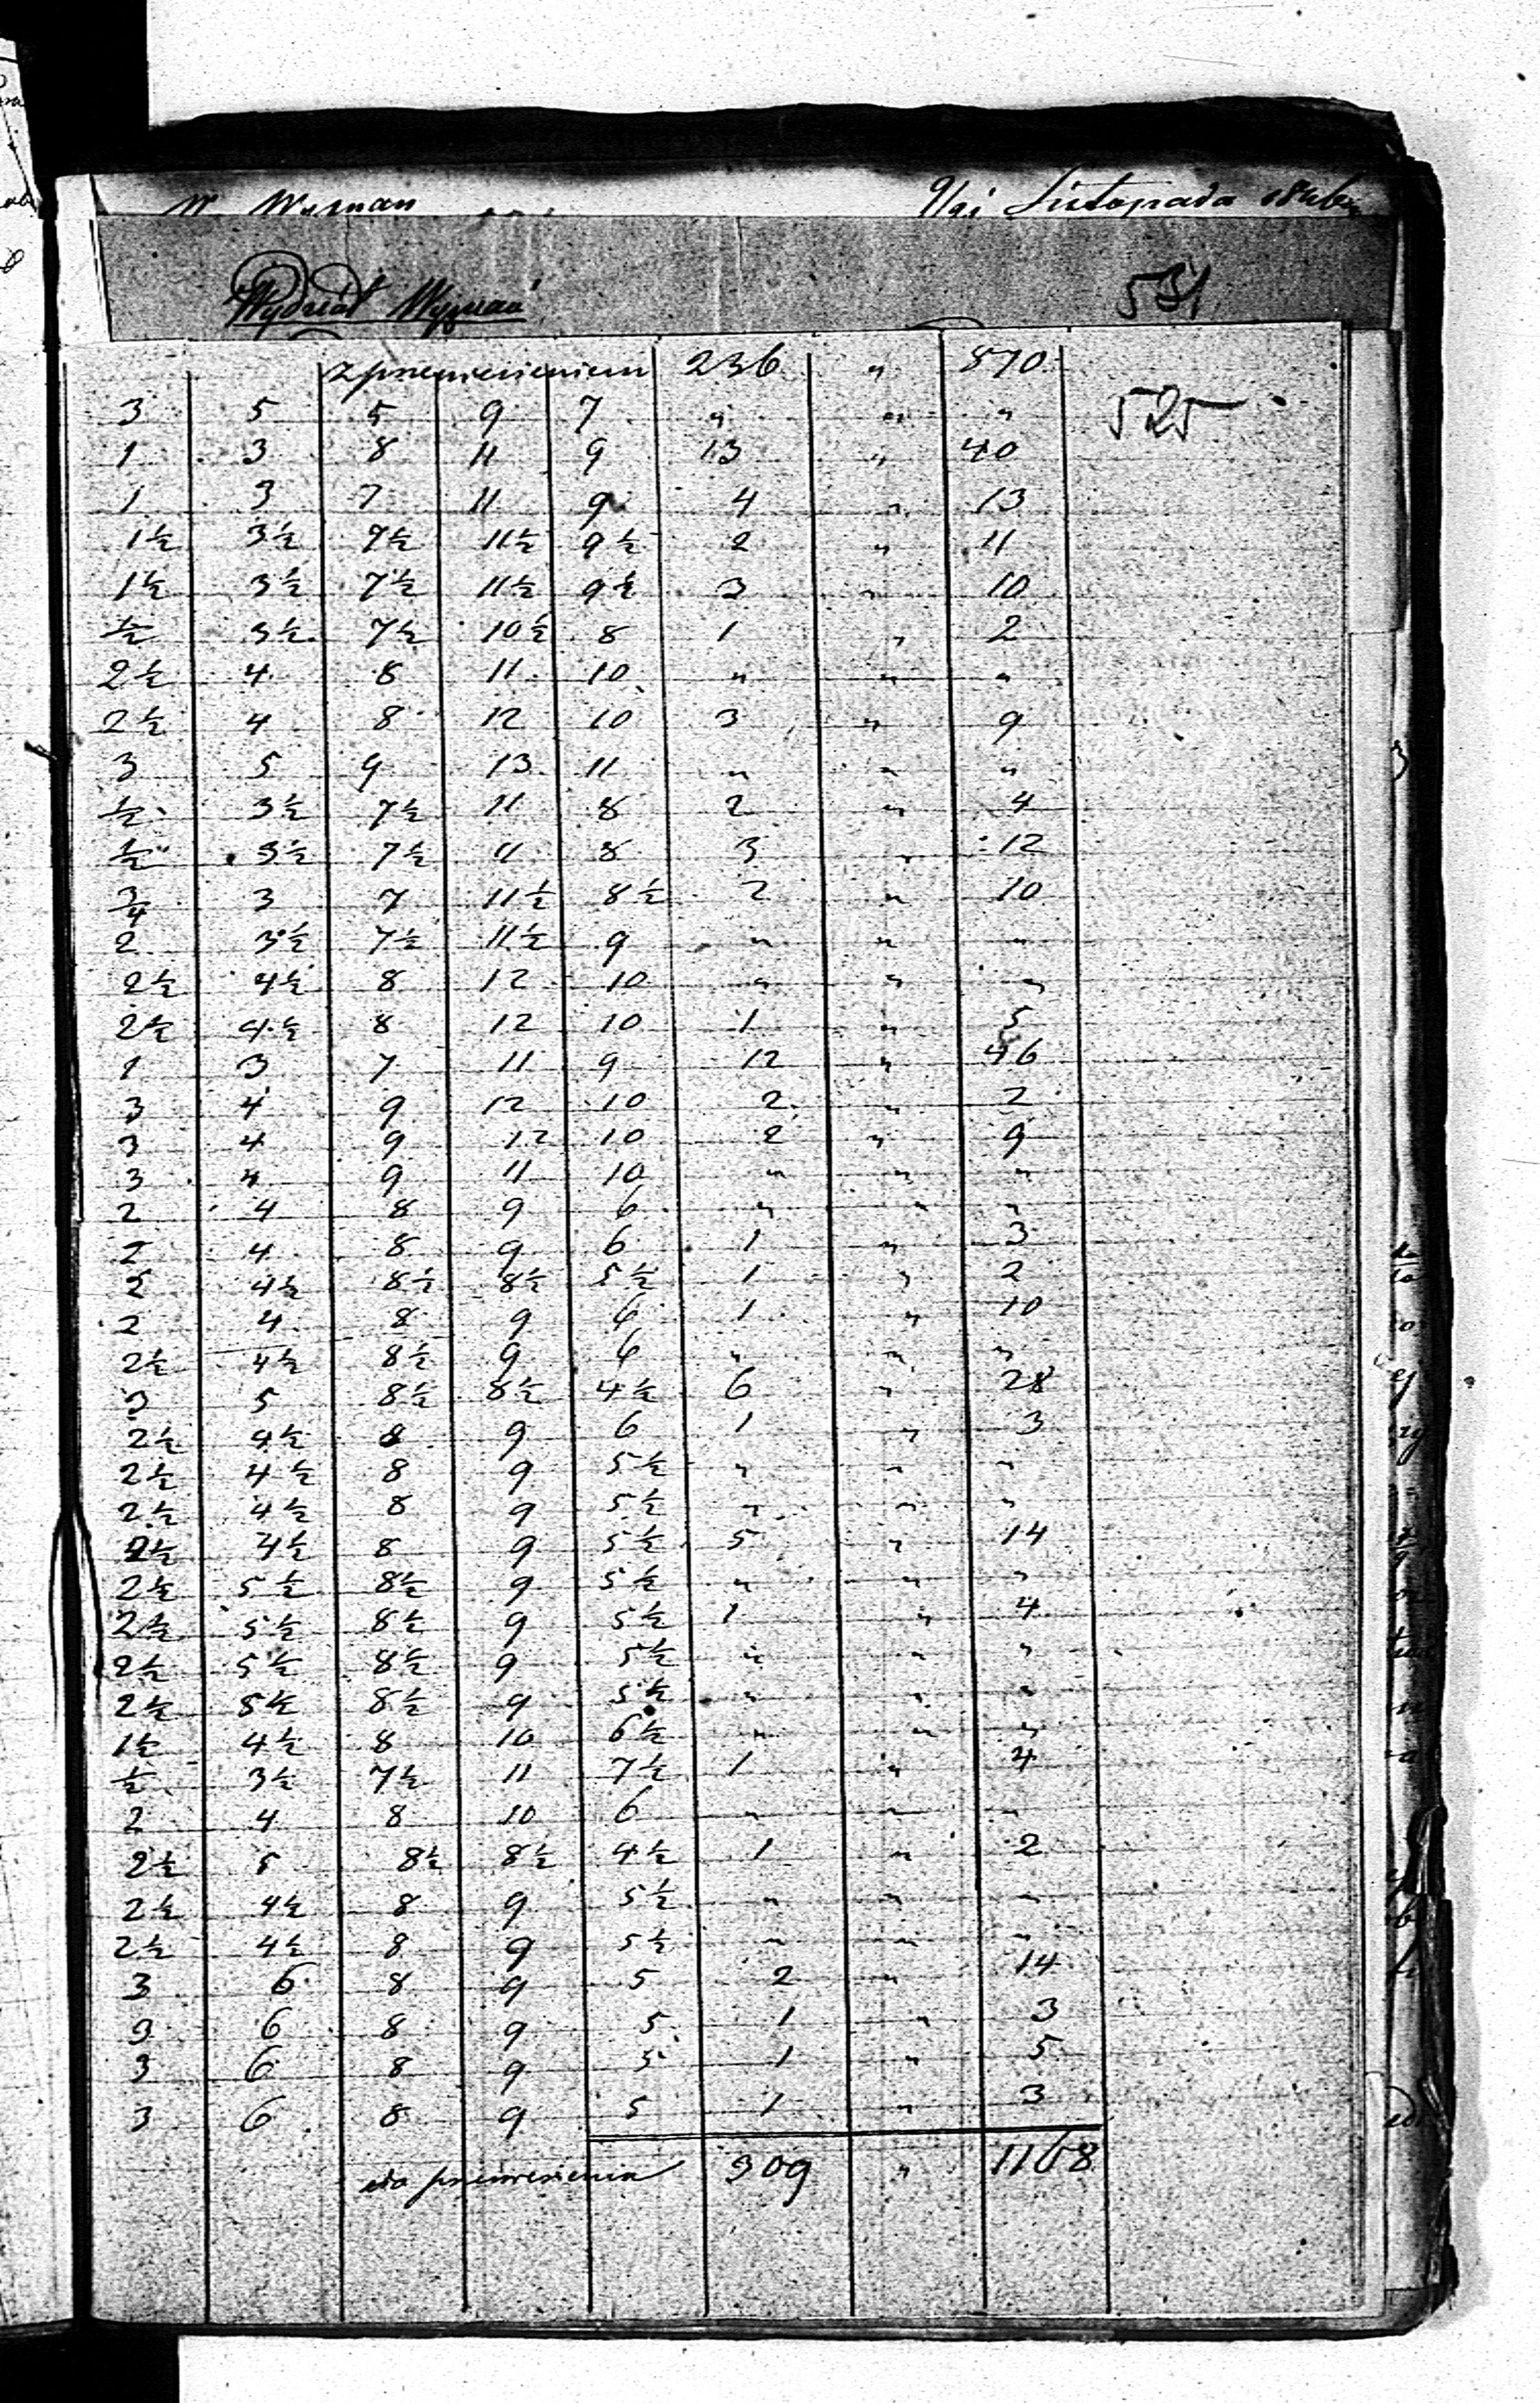 9/21 Listopada 184
Wydział Wyznań
531
z przeniesieniem 236 " 870
525
3 5 5 9 7 " " "
1 3 8 11 9 13 " 40
1 3 7 11 9 4 " 13
1½ 3½ 7½ 11½ 9½ 2 " 11
1½ 3½ 7½ 11½ 9½ 3 " 10
½ 3½ 7½ 10½ 8 1 " 2
2½ 4 8 11 10 " " "
2½ 4 8 12 10 3 " 9
3 5 9 13 11 " " "
½ 3½ 7½ 11 8 2 " 4
½ 3½ 7½ 11 8 3 " 12
¾ 3 7 11½ 8½ 2 " 10
2 3½ 7½ 11½ 9 " " "
2½ 4½ 8 12 10 " " "
2½ 4½ 8 12 10 1 " 5
1 3 7 11 9 12 " 46
3 4 9 12 10 2 " 2
3 4 9 12 10 2 " 9
3 4 9 11 10 " " "
2 4 8 9 6 " " "
2 4 8 9 6 1 " 3
2 4½ 8½ 8½ 5½ 1 " 2
2 4 8 9 6 1 " 10
2½ 4½ 8½ 9 6 " " "
3 5 8½ 8½ 4½ 6 " 28
2½ 4½ 8 9 6 1 " 3
2½ 4½ 8 9 5½ " " "
2½ 4½ 8 9 5½ " " "
2½ 4½ 8 9 5½ 5 " 14
2½ 5½ 8½ 9 5½ " " "
2½ 5½ 8½ 9 5½ 1 " 4
2½ 5½ 8½ 9 5½ " " "
2½ 5½ 8½ 9 5½ " " "
1½ 4½ 8 10 6½ " " "
½ 3½ 7½ 11 7½ 1 " 4
2 4 8 10 6 " " "
2½ 5 8½ 8½ 4½ 1 " 2
2½ 4½ 8 9 5½ " " "
2½ 4½ 8 9 5½ " " "
3 6 8 9 5 2 " 14
3 6 8 9 5 1 " 3
3 6 8 9 5 1 " 5
3 6 8 9 5 1 " 3
do przeniesienia 309 " 1168